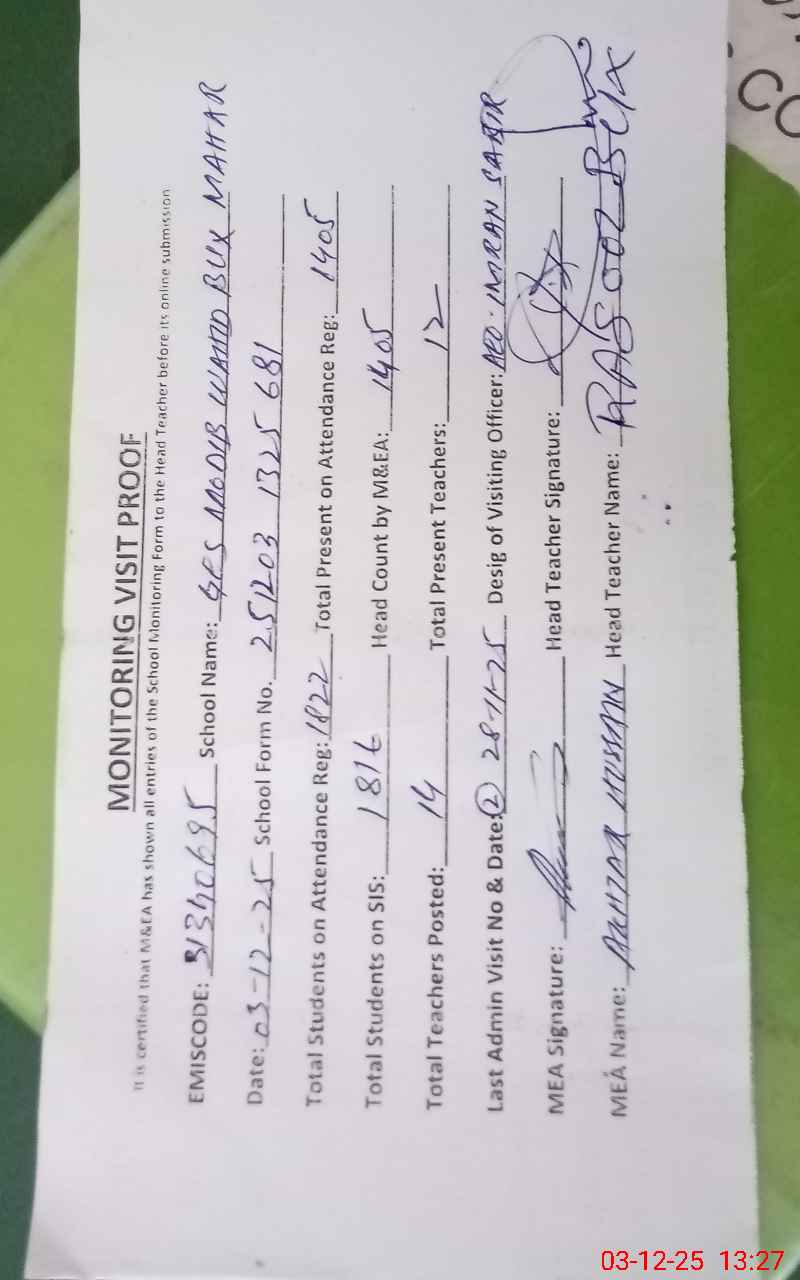 MONITORING VISIT PROOF
It is certified that M&EA has shown all entries of the School Monitoring Form to the Head Teacher before its online submission
EMISCODE: 31340695 School Name: GPS MODLB WAHID BUX MAHAR
Date: 03-12-25 School Form No. 251203 1325 681
Total Students on Attendance Reg: 1822 Total Present on Attendance Reg: 1405
Total Students on SIS: 1816 Head Count by M&EA: 1405
Total Teachers Posted: 14 Total Present Teachers: 12
Last Admin Visit No & Date: 2 28-11-25 Desig of Visiting Officer: AEO. IMRAN SABIR
MEA Signature: Head Teacher Signature:
MEA Name: HUSSAIN Head Teacher Name: RASOOL BUX
CO
03-12-25 13:27